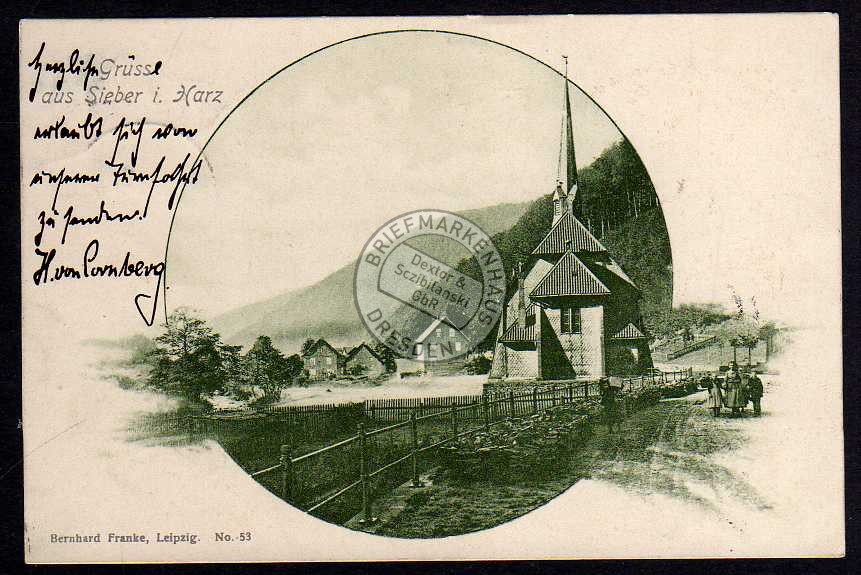 Herzliche Grüsse
aus Sieber i. Harz
erlaubt sich von
unserer Turnfahrt
zu senden.
H. von
BRIEFMARKENHAUS
Dextor &
Sczibilanski
GbR
DRESDEN
Bernhard Franke, Leipzig. No. 53